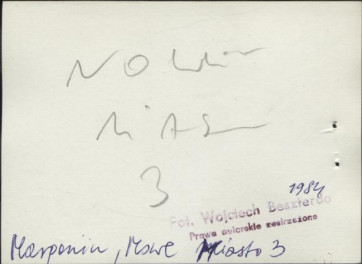 NOWE
MIAS
3
1984
Fot. Wojciech Beszterda
Prawa autorskie zastrzeżone
Marponin, Nowe Miasto 3